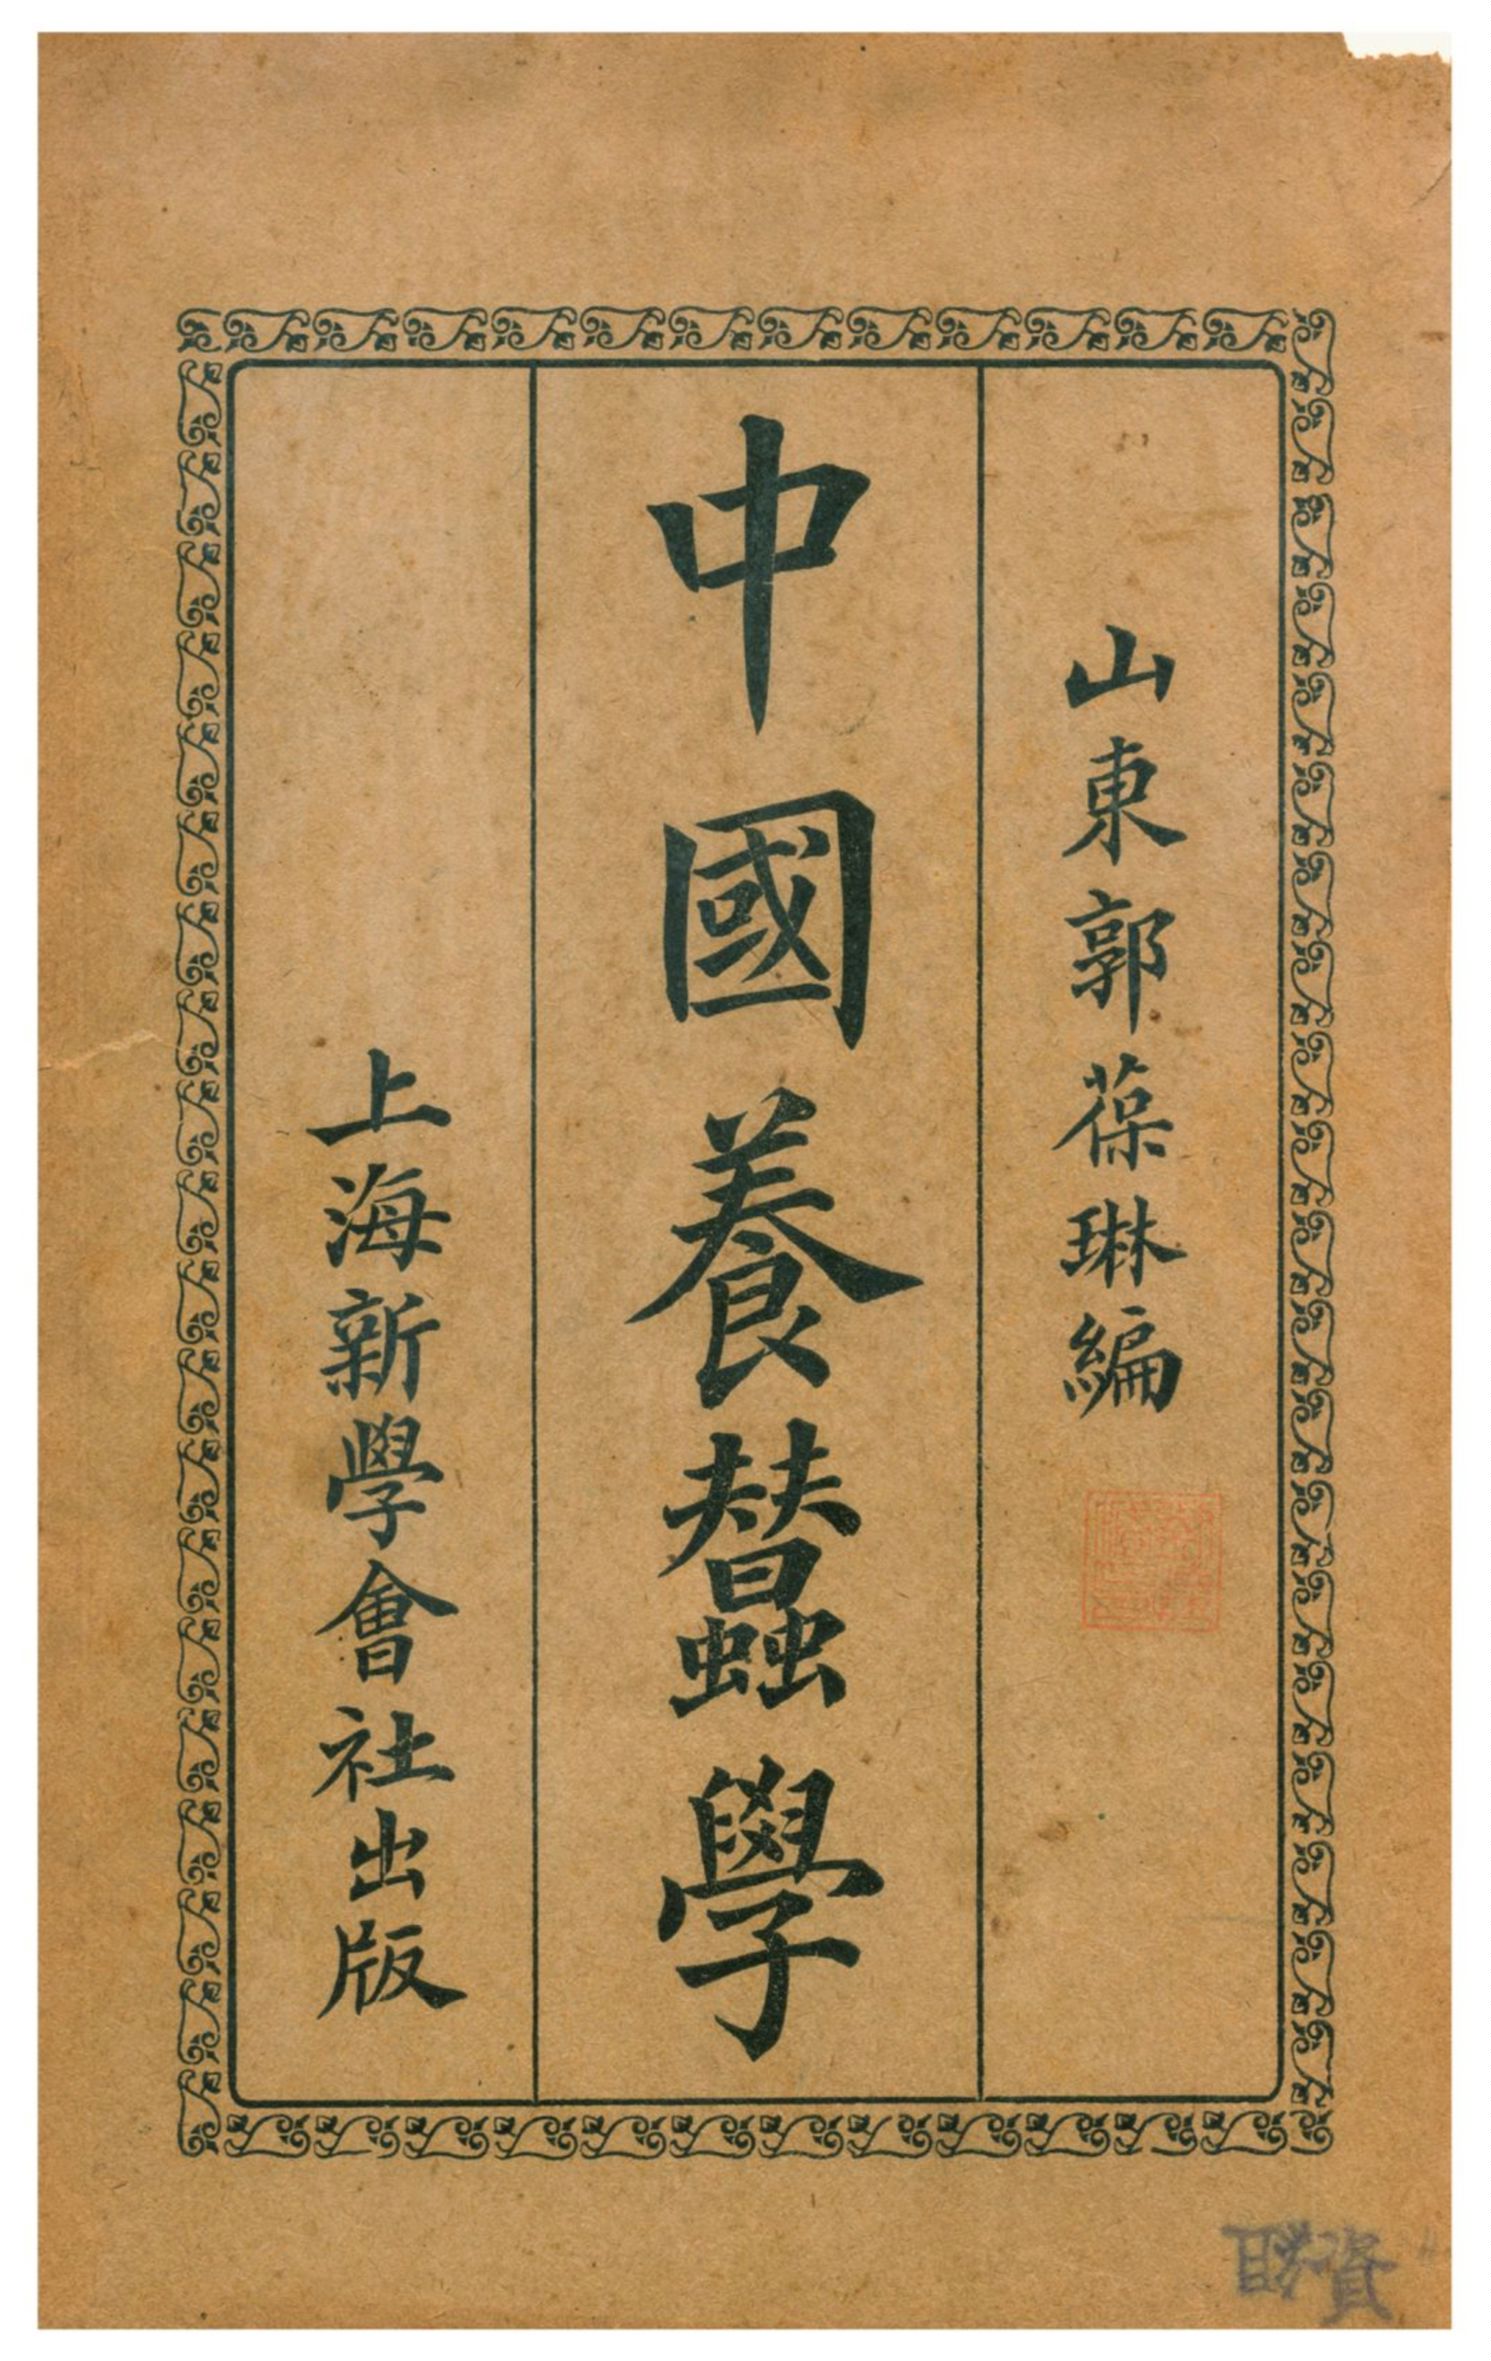 山東郭葆琳編
中國養蠺學
上海新學會社出版